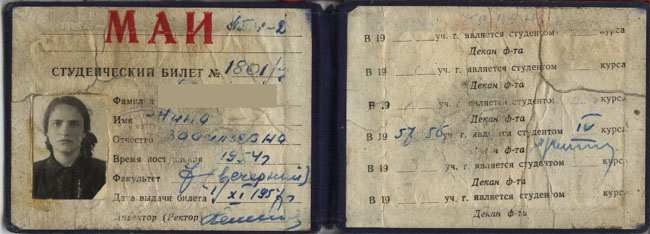 МАИ
СТУДЕНЧЕСКИЙ БИЛЕТ № 1801/
Фамилия
Имя Анна
Отчество
Время поступления 1954г
Факультет (вечерний)
Дата выдачи билета XI 1954г
Директор (Ректор)
В 19 уч. г. является студентом курса
Декан ф-та
В 19 уч. г. является студентом курса
Декан ф-та
В 19 уч. г. является студентом курса
Декан ф-та
В 19 57 58 уч. г. является студентом IV курса
Декан ф-та
В 19 уч. г. является студентом курса
Декан ф-та
В 19 уч. г. является студентом курса
Декан ф-та